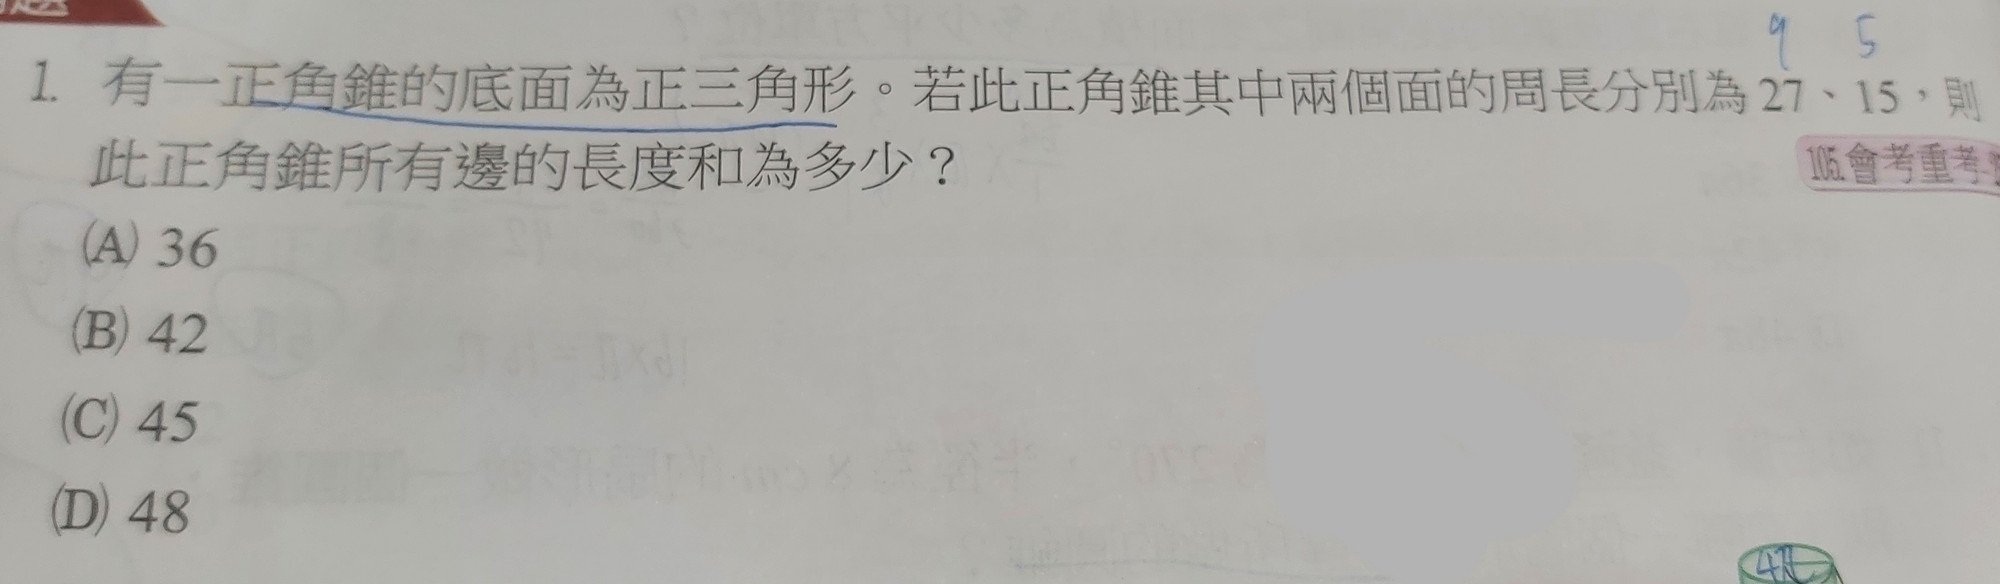 9 5
1. 有一正角錐的底面為正三角形。若此正角錐其中兩個面的周長分別為27、15,則
此正角錐所有邊的長度和為多少?
105.會考重考
(A) 36
(B) 42
(C) 45
(D) 48